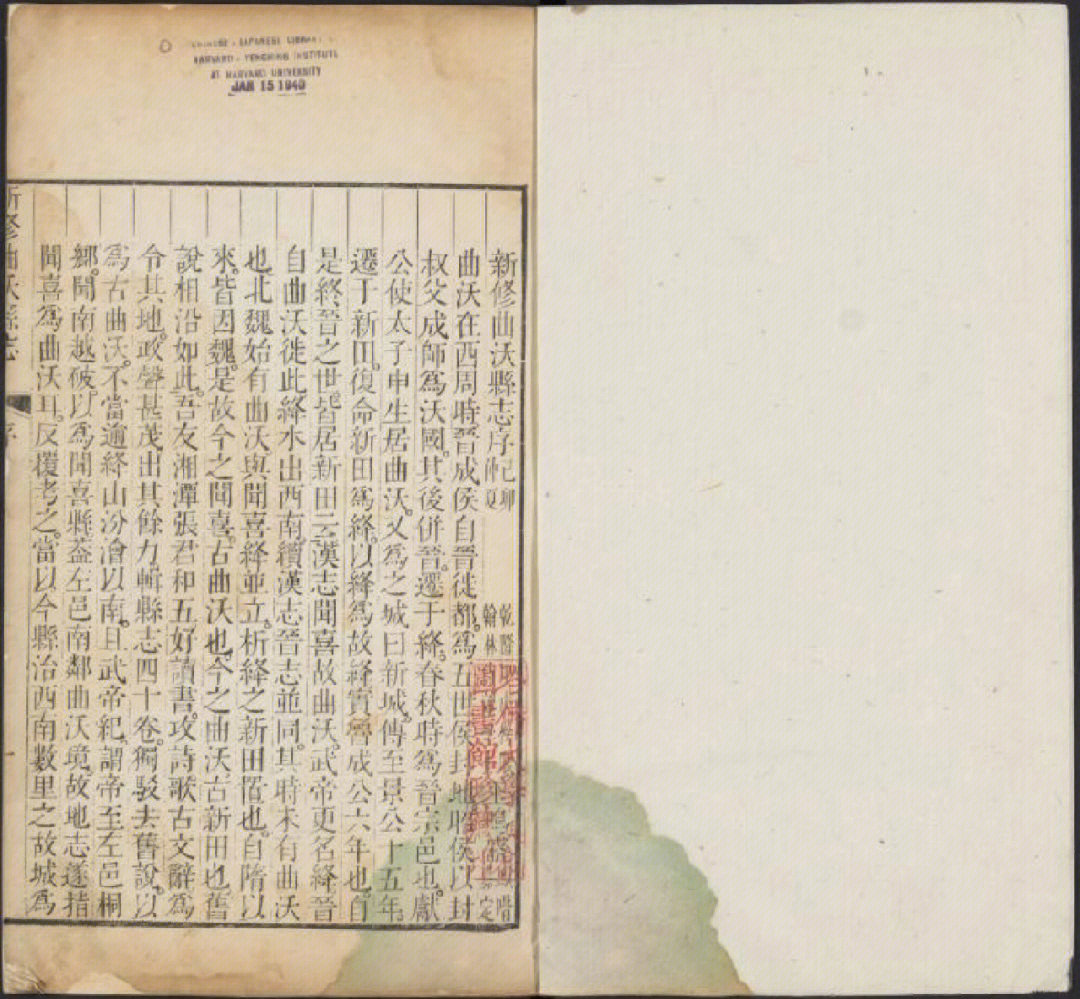 CHINESE - JAPANESE LIBRARY
HARVARD - YENCHING INSTITUTE
AT HARVARD UNIVERSITY
JAN 15 1940
新修曲沃縣志序
乾隆
翰林
曲沃在西周時晉成侯自晉徙都爲五世侯封地昭侯以封
叔父成師爲沃國其後併晉遷于絳春秋時爲晉宗邑也獻
公使太子申生居曲沃又爲之城曰新城傳至景公十五年
遷于新田復命新田爲絳以絳爲故絳實魯成公六年也自
是終晉之世皆居新田云漢志聞喜故曲沃武帝更名絳晉
自曲沃徙此絳水出西南續漢志晉志並同其時未有曲沃
也北魏始有曲沃與聞喜絳並立析絳之新田置也自隋以
來皆因魏是故今之聞喜古曲沃也今之曲沃古新田也舊
說相沿如此吾友湘潭張君和五好讀書攻詩歌古文辭爲
令其地政聲甚茂出其餘力輯縣志四十卷獨駁去舊說以
爲古曲沃不當逾絳山汾澮以南且武帝紀謂帝至左邑桐
鄉聞南越破以爲聞喜縣蓋左邑南鄰曲沃境故地志遂指
聞喜爲曲沃耳反覆考之當以今縣治西南數里之故城爲
新修曲沃縣志
序
一